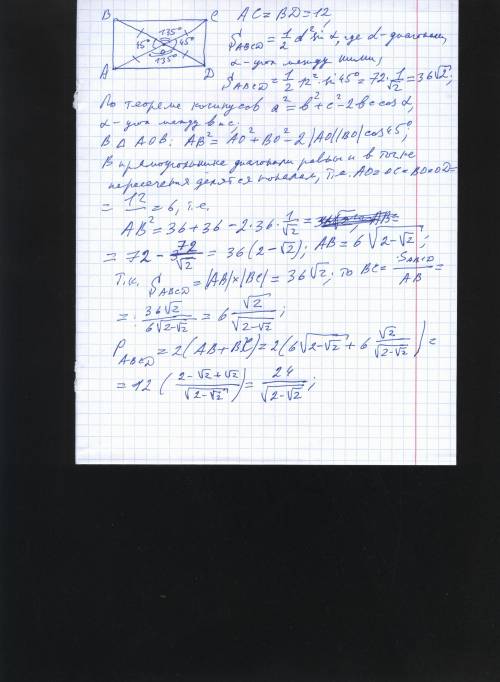 B C
135°
45° 45°
O
135°
A D
AC = BD = 12
S_ABCD = 1/2 d² sin α, где d - диагонали,
α - угол между ними,
S_ABCD = 1/2 · 12² · sin 45° = 72 · 1/√2 = 36√2;
По теореме косинусов a² = b² + c² - 2bc cos α,
α - угол между b и c.
В Δ AOB: AB² = AO² + BO² - 2|AO||BO| cos 45°
В прямоугольнике диагонали равны и в точке
пересечения делятся пополам, т.е. AO = OC = BO = OD =
= 12/2 = 6, т.е.
AB² = 36 + 36 - 2·36 · 1/√2 =
= 72 - 72/√2 = 36(2 - √2); AB = 6√(2-√2);
Т.к. S_ABCD = |AB|×|BC| = 36√2; то BC = S_ABCD/AB =
= 36√2/(6√(2-√2)) = 6 √2/√(2-√2);
P_ABCD = 2(AB + BC) = 2(6√(2-√2) + 6 √2/√(2-√2)) =
= 12 ((2-√2+√2)/√(2-√2)) = 24/√(2-√2);